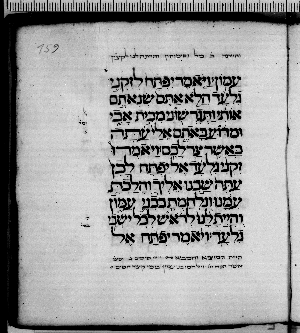 159
עמון ויאמר יפתח לזקני
גלעד הלא אתם שנאתם
אותי ותגרשוני מבית אבי
ומדוע באתם אלי עתה
כאשר צר לכם ויאמרו
זקני גלעד אל יפתח לכן
עתה שבנו אליך והלכת
עמנו ונלחמת בבני עמון
והיית לנו לראש לכל ישבי
גלעד ויאמר יפתח אל